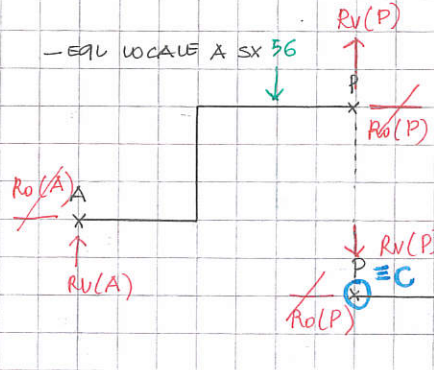 Rv(P)
- EQL LOCALE A SX 56
P
Ro(P)
Ro(A)
A
Rv(A)
Rv(P)
P ≡ C
Ro(P)